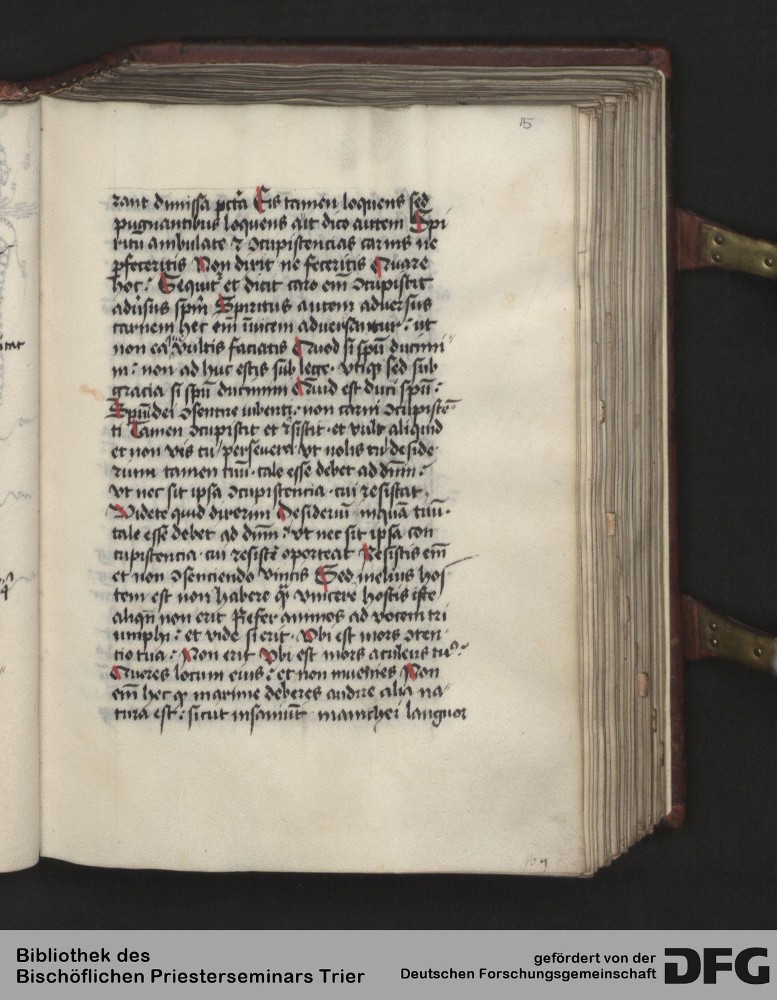 15
rant dimissa pctā Eis tamen loquens sed
pugnantibus loquens ait dico autem Spi
ritu ambulate ⁊ ɔcupistencias carnis ne
pfeceritis Non dixit ne feceritis Quare
hoc: Sequit᷑ et dicit caro em̄ ɔcupistit
adūsus spm̄ Spiritus autem adversus
carnem hec em̄ īuicem adversantur: ut
non ea vultis faciatis Quod si spū ducimi
ni: non ad huc estis sub lege. vtiqꝫ sed sub
gracia si spū ducimini Quid est duci spū:
Spiūi dei ɔsentire iubenti: non carni ɔcupistē
ti Tamen ɔcupistit et resistit et vult aliquid
et non vis tu persevera vt nolis tu deside
rium tamen tuū tale esse debet ad dnm̄:
vt nec sit ipsa ɔcupistencia cui resistat
Videte quid dixerim Desideriū inquā tuū
tale esse debet ad dnm̄: vt nec sit ipsa con
cupistencia cui resistē oporteat Resistis em̄
et non ɔsenciendo vincis Sed melius hos
tem est non habere qᷓ vincere hostis iste
aliqn̄ non erit Refer animos ad vocem tri
umphi: et vide si erit. Vbi est mors ɔten
tio tua: Non erit Vbi est mors aculeus tuꝰ:
Queres locum eius: et non invenies Non
em̄ hec qꝫ maxime deberes audire alia na
tura est: sicut insaniūt manichei languor
Bibliothek des
Bischöflichen Priesterseminars Trier
gefördert von der
Deutschen Forschungsgemeinschaft
DFG